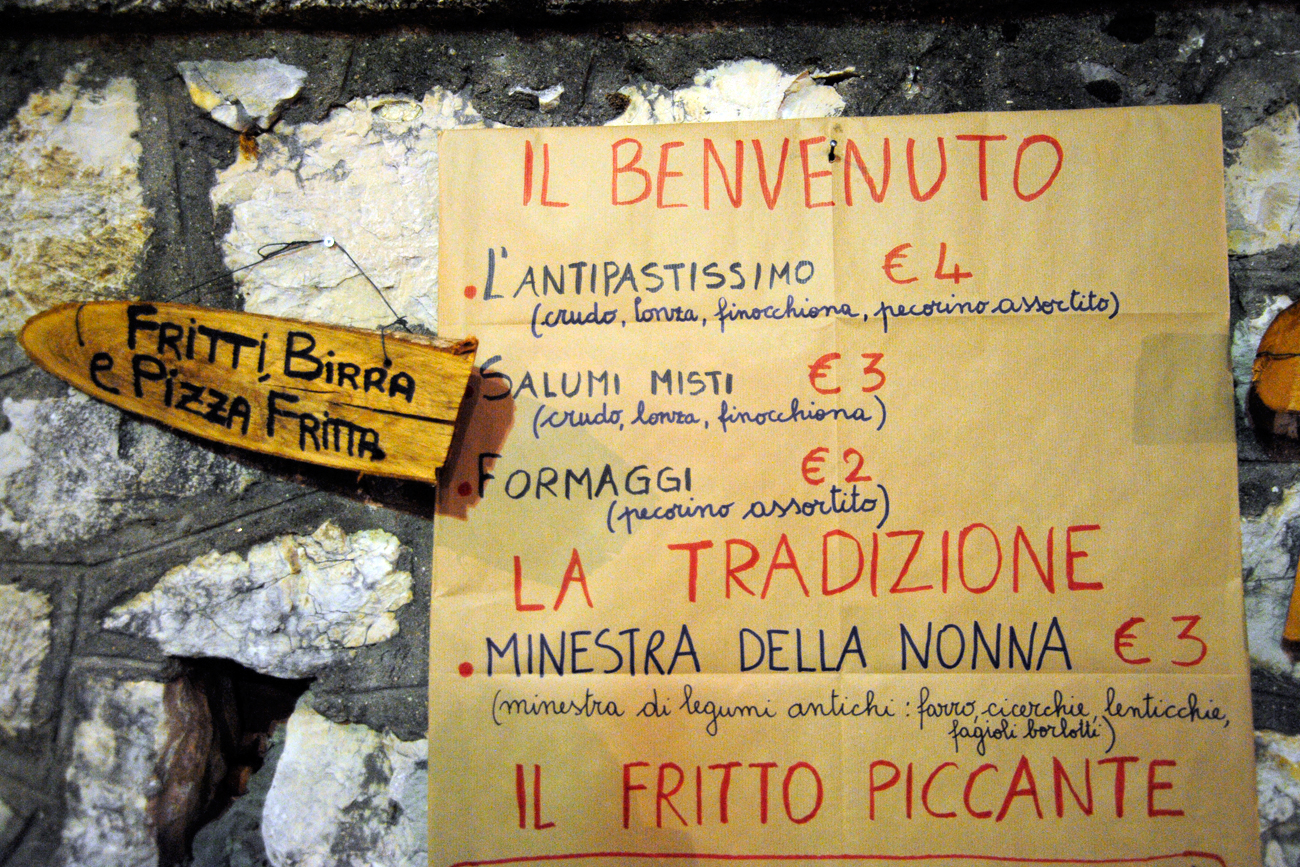 IL BENVENUTO
L'ANTIPASTISSIMO € 4
(crudo, lonza, finocchiona, pecorino assortito)
FRITTI, BIRRA
e PIZZA FRITTA
SALUMI MISTI € 3
(crudo, lonza, finocchiona)
FORMAGGI € 2
(pecorino assortito)
LA TRADIZIONE
MINESTRA DELLA NONNA € 3
(minestra di legumi antichi: farro, cicerchie, lenticchie,
fagioli borlotti)
IL FRITTO PICCANTE